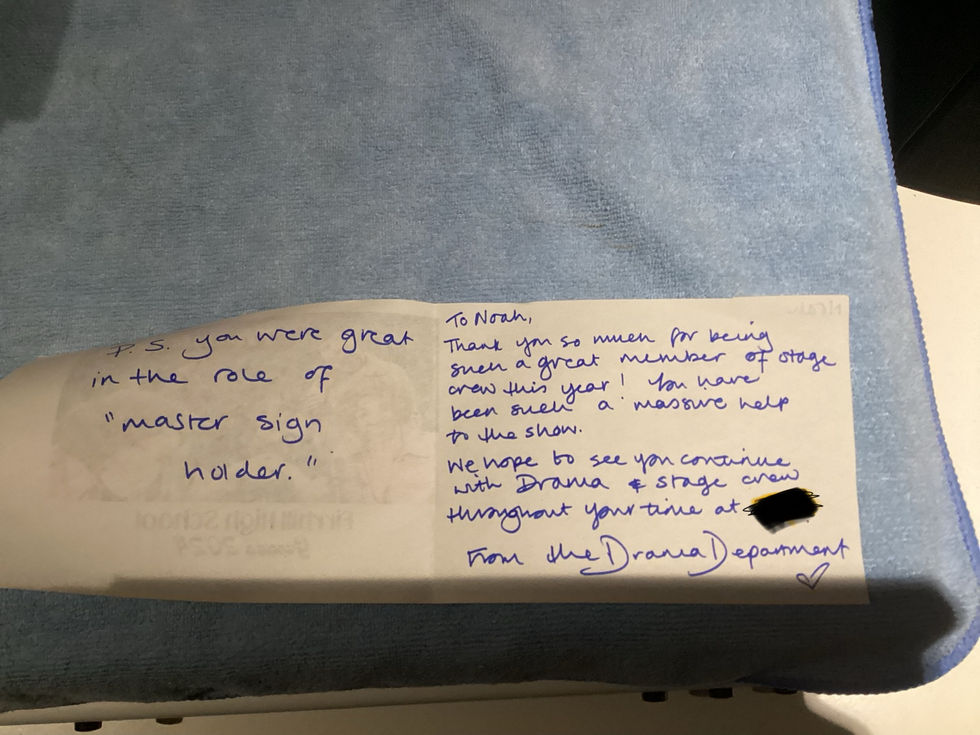 To Noah,
Thank you so much for being
such a great member of stage
crew this year! You have
been such a massive help
to the show.
We hope to see you continue
with Drama & stage crew
throughout your time at
From the Drama Department
P.S. you were great
in the role of
"master sign
holder."
High School
2024
Noah